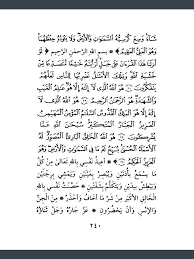 شَاءَ وَسِعَ كُرْسِيُّهُ السَّمَوَاتِ وَالْأَرْضَ وَلَا يَؤُودُهُ حِفْظُهُمَا
وَهُوَ الْعَلِيُّ الْعَظِيمُ * بِسْمِ اللهِ الرَّحْمَنِ الرَّحِيمِ * لَوْ
أَنْزَلْنَا هَذَا الْقُرْآنَ عَلَى جَبَلٍ لَرَأَيْتَهُ خَاشِعًا مُتَصَدِّعًا مِنْ
خَشْيَةِ اللهِ وَتِلْكَ الْأَمْثَالُ نَضْرِبُهَا لِلنَّاسِ لَعَلَّهُمْ
يَتَفَكَّرُونَ هُوَ اللهُ الَّذِي لَا إِلَهَ إِلَّا هُوَ عَالِمُ الْغَيْبِ
وَالشَّهَادَةِ هُوَ الرَّحْمَنُ الرَّحِيمُ هُوَ اللهُ الَّذِي لَا إِلَهَ
إِلَّا هُوَ الْمَلِكُ الْقُدُّوسُ السَّلَامُ الْمُؤْمِنُ الْمُهَيْمِنُ
الْعَزِيزُ الْجَبَّارُ الْمُتَكَبِّرُ سُبْحَانَ اللهِ عَمَّا يُشْرِكُونَ
هُوَ اللهُ الْخَالِقُ الْبَارِئُ الْمُصَوِّرُ لَهُ الْأَسْمَاءُ
الْحُسْنَى يُسَبِّحُ لَهُ مَا فِي السَّمَوَاتِ وَالْأَرْضِ وَهُوَ
الْعَزِيزُ الْحَكِيمُ * أُعِيذُ نَفْسِي بِاللهِ تَعَالَى مِنْ كُلِّ
مَا يَسْمَعُ بِأُذُنَيْنِ وَيُبْصِرُ بِعَيْنَيْنِ وَيَمْشِي بِرِجْلَيْنِ
وَيَبْطِشُ بِيَدَيْنِ وَيَتَكَلَّمُ بِشَفَتَيْنِ * حَصَّنْتُ نَفْسِي بِاللهِ
الْخَالِقِ الْأَكْبَرِ مِنْ شَرِّ مَا أَخَافُ وَأَحْذَرُ مِنَ الْجِنِّ
وَالْإِنْسِ وَأَنْ يَحْضُرُونِ * عَزَّ جَارُهُ وَجَلَّ ثَنَاؤُهُ
٢٤٠